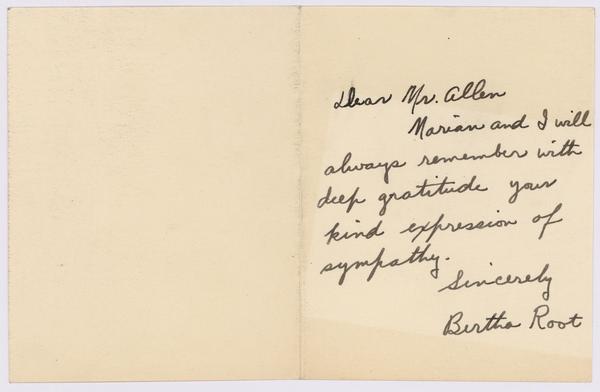 Dear Mr. Allen
Marian and I will
always remember with
deep gratitude your
kind expression of
sympathy.
Sincerely
Bertha Root